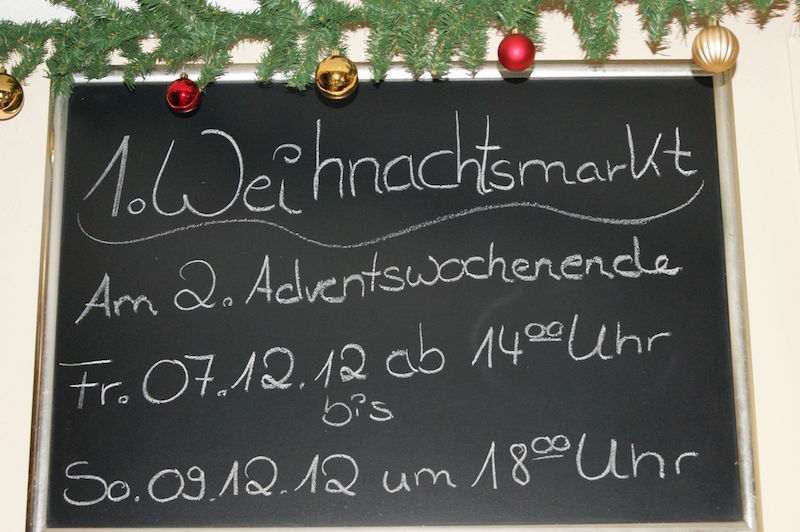 1. Weihnachtsmarkt
Am 2. Adventswochenende
Fr. 07.12.12 ab 14⁰⁰ Uhr
bis
So. 09.12.12 um 18⁰⁰ Uhr